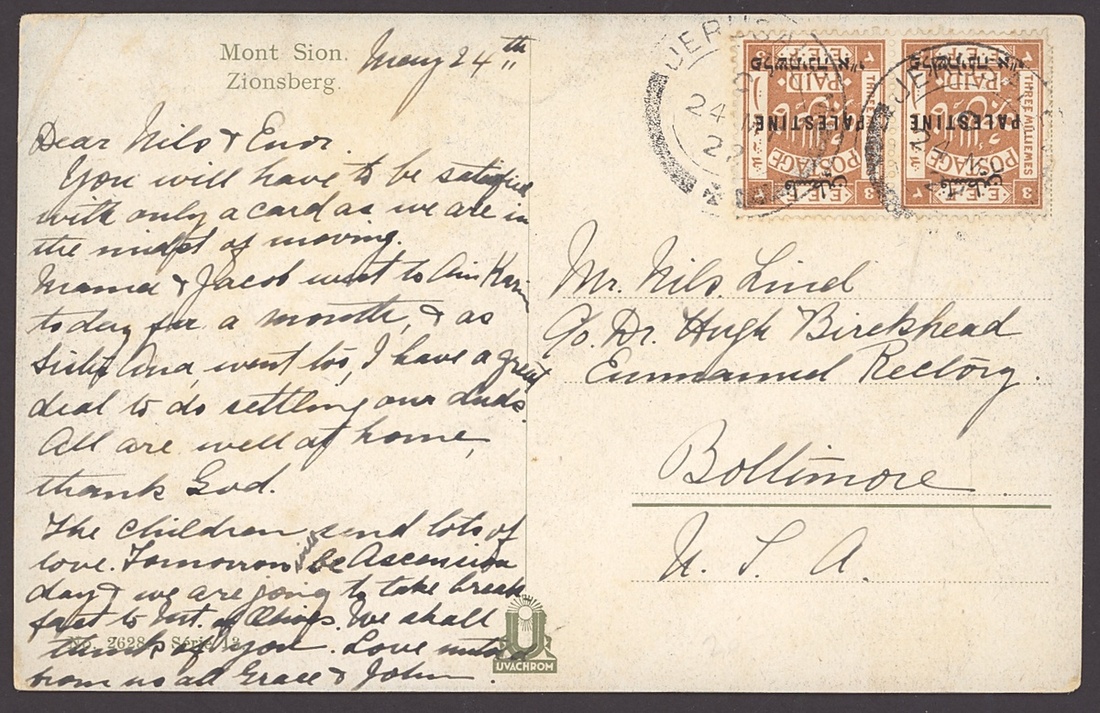 Mont Sion.
Zionsberg.
May 24th
Dear Nils & Enor.
You will have to be satisfied
with only a card as we are in
the midst of moving.
Mama & Jacob went to Ain Karim
today for a month, & as
Sister Ana, went too, I have a great
deal to do settling our duds.
All are well at home,
thank God.
The children send lots of
love. Tomorrow will be Ascension
day & we are going to take break
fast to Mt. of Olives. We shall
think of you. Love
from us all Grace & John.
No. 2628 Série 13
UVACHROM
JERUSA
24
PALESTINE
פלשתינה א״י
E.E.F.
PAID
POSTAGE
THREE MILLIEMES
3
JE
PALESTINE
פלשתינה א״י
E.E.F.
PAID
POSTAGE
THREE MILLIEMES
3
Mr. Nils. Lind
c/o. Dr. Hugh Birckhead
Emmanuel Rectory.
Boltimore
U. S. A.